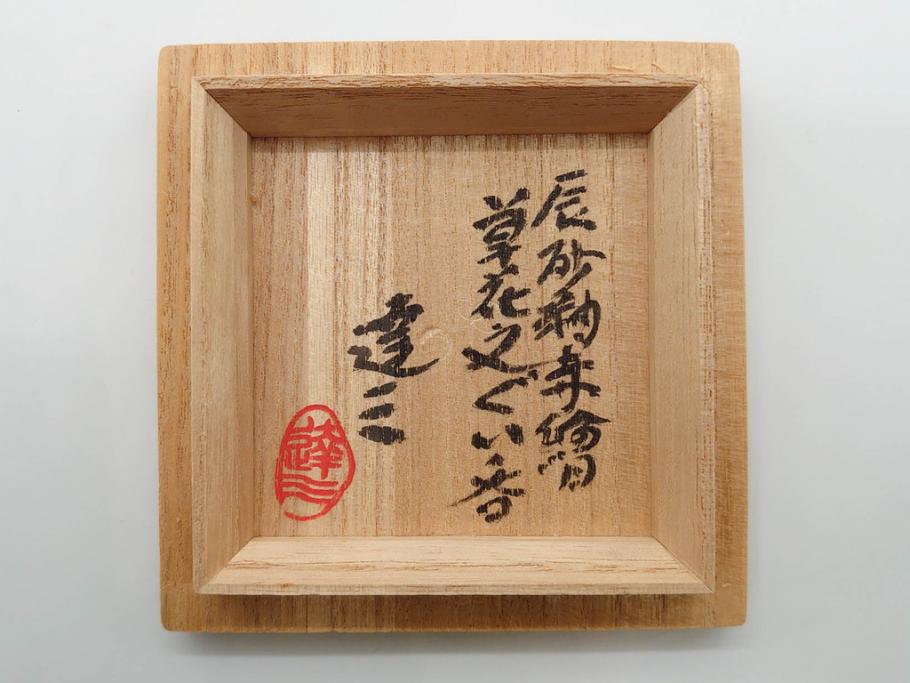 辰砂釉赤繪
草花文ぐい呑
達三
達三